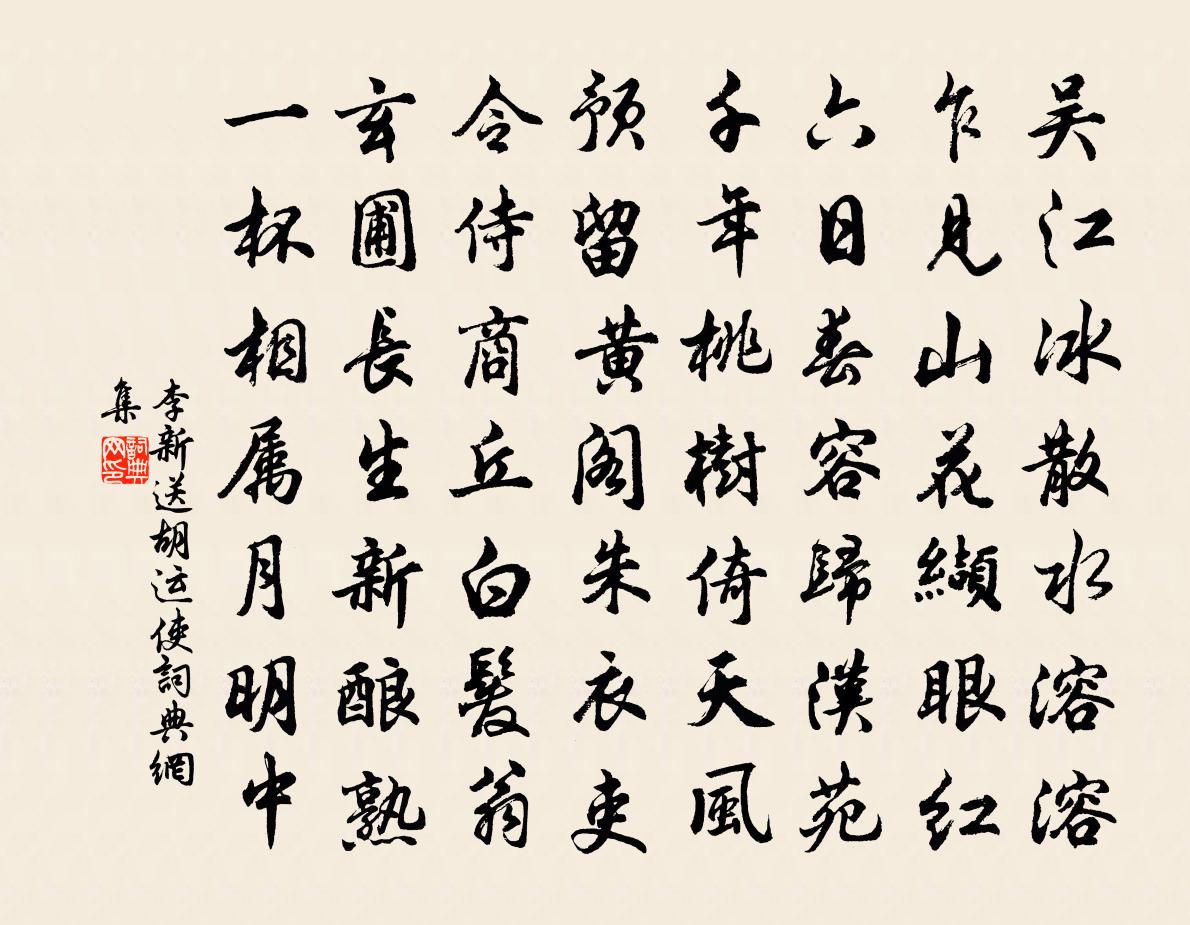 吴江冰散水溶溶
乍見山花纈眼红
六日春容歸漢苑
千年桃樹倚天風
预留黄阁朱衣吏
令侍商丘白髮翁
玄圃長生新酿熟
一杯相属月明中
李新送胡运使詞典網
集
詞典
网印